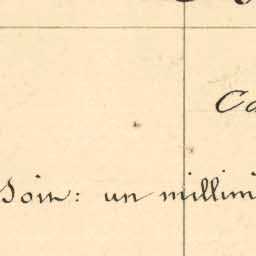 Ca
Soin: un millim